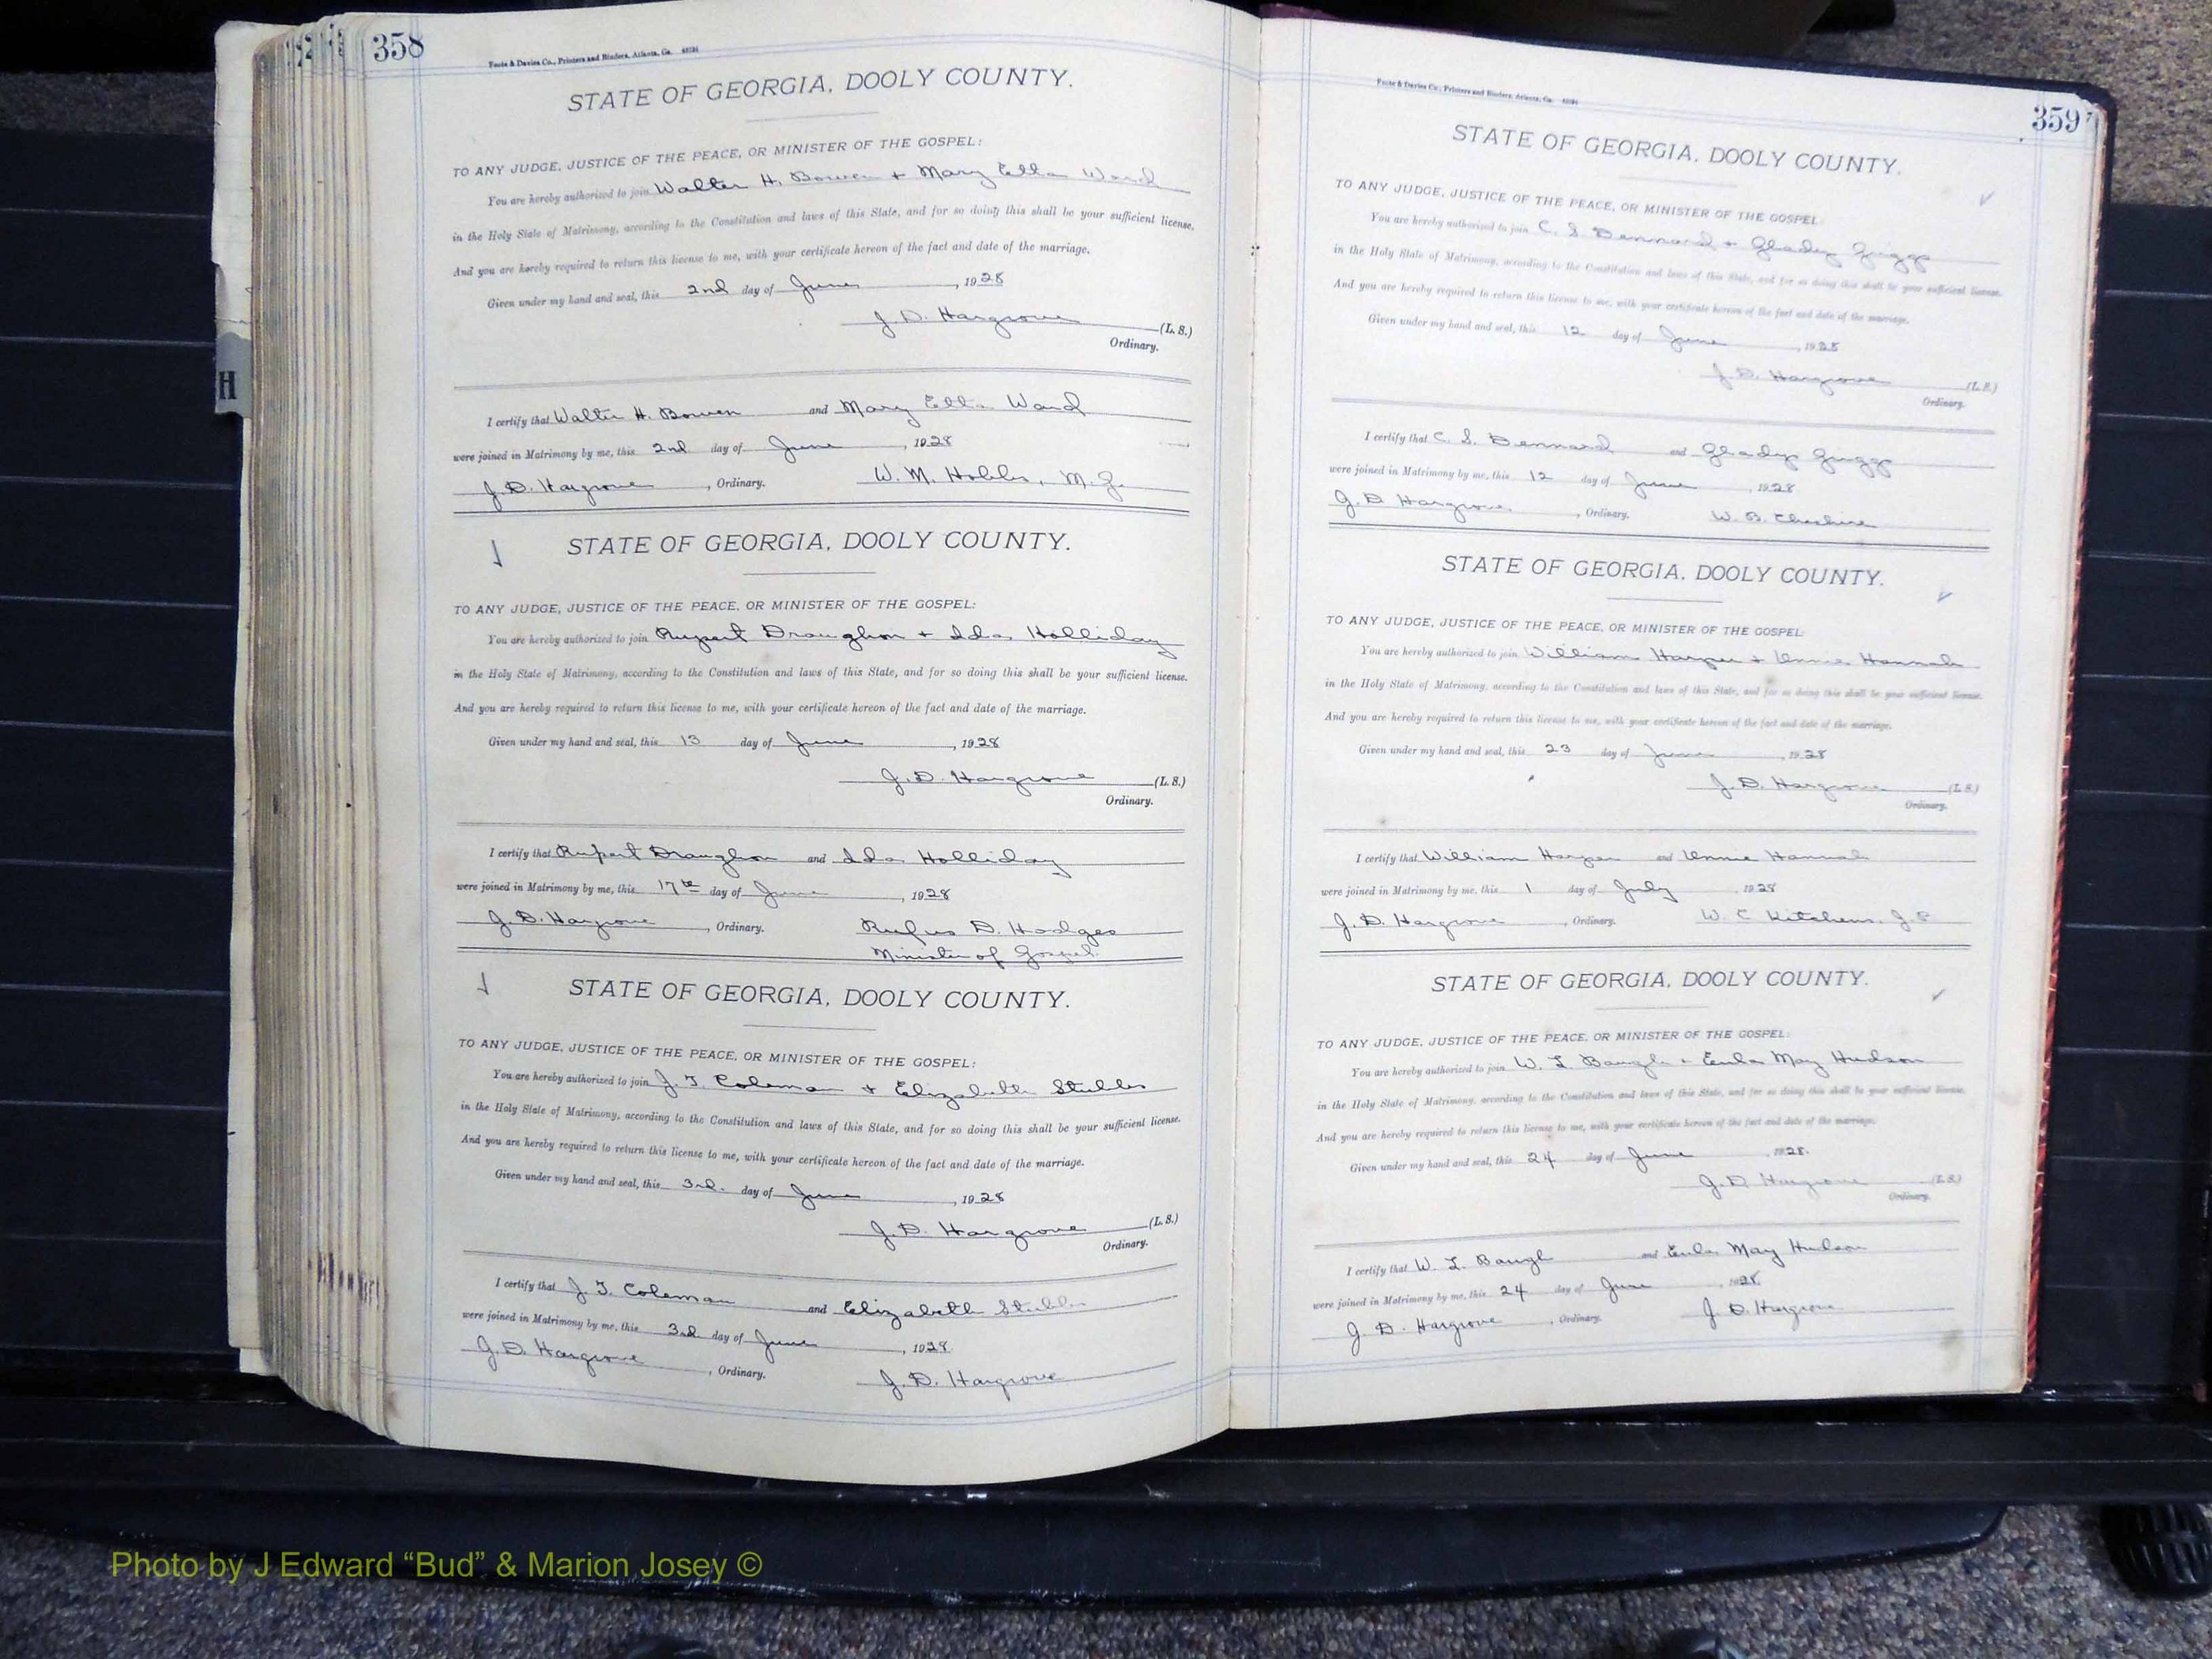 358
Foote & Davies Co., Printers and Binders, Atlanta, Ga.
STATE OF GEORGIA, DOOLY COUNTY.
TO ANY JUDGE, JUSTICE OF THE PEACE, OR MINISTER OF THE GOSPEL:
You are hereby authorized to join Walter H. Bowen + Mary Ella Ward
in the Holy State of Matrimony, according to the Constitution and laws of this State, and for so doing this shall be your sufficient license.
And you are hereby required to return this license to me, with your certificate hereon of the fact and date of the marriage.
Given under my hand and seal, this 2nd day of June, 1928
J. D. Hargrove (L. S.)
Ordinary.
I certify that Walter H. Bowen and Mary Ella Ward
were joined in Matrimony by me, this 2nd day of June, 1928
J. D. Hargrove, Ordinary. W. M. Hobbs, M. G.
STATE OF GEORGIA, DOOLY COUNTY.
TO ANY JUDGE, JUSTICE OF THE PEACE, OR MINISTER OF THE GOSPEL:
You are hereby authorized to join Rupert Draughon + Ida Holliday
in the Holy State of Matrimony, according to the Constitution and laws of this State, and for so doing this shall be your sufficient license.
And you are hereby required to return this license to me, with your certificate hereon of the fact and date of the marriage.
Given under my hand and seal, this 13 day of June, 1928
J. D. Hargrove (L. S.)
Ordinary.
I certify that Rupert Draughon and Ida Holliday
were joined in Matrimony by me, this 17th day of June, 1928
J. D. Hargrove, Ordinary. Rufus D. Hodges
Minister of Gospel.
STATE OF GEORGIA, DOOLY COUNTY.
TO ANY JUDGE, JUSTICE OF THE PEACE, OR MINISTER OF THE GOSPEL:
You are hereby authorized to join J. T. Coleman + Elizabeth Stubbs
in the Holy State of Matrimony, according to the Constitution and laws of this State, and for so doing this shall be your sufficient license.
And you are hereby required to return this license to me, with your certificate hereon of the fact and date of the marriage.
Given under my hand and seal, this 3rd. day of June, 1928
J. D. Hargrove (L. S.)
Ordinary.
I certify that J. T. Coleman and Elizabeth Stubbs
were joined in Matrimony by me, this 3rd day of June, 1928
J. D. Hargrove, Ordinary. J. D. Hargrove
H
359
Foote & Davies Co., Printers and Binders, Atlanta, Ga.
STATE OF GEORGIA, DOOLY COUNTY.
TO ANY JUDGE, JUSTICE OF THE PEACE, OR MINISTER OF THE GOSPEL:
You are hereby authorized to join C. S. Dennard + Gladys Griggs
in the Holy State of Matrimony, according to the Constitution and laws of this State, and for so doing this shall be your sufficient license.
And you are hereby required to return this license to me, with your certificate hereon of the fact and date of the marriage.
Given under my hand and seal, this 12 day of June, 1928
J. D. Hargrove (L. S.)
Ordinary.
I certify that C. S. Dennard and Gladys Griggs
were joined in Matrimony by me, this 12 day of June, 1928
J. D. Hargrove, Ordinary. W. B. Cheshire
STATE OF GEORGIA, DOOLY COUNTY.
TO ANY JUDGE, JUSTICE OF THE PEACE, OR MINISTER OF THE GOSPEL:
You are hereby authorized to join William Harper + Hannah
in the Holy State of Matrimony, according to the Constitution and laws of this State, and for so doing this shall be your sufficient license.
And you are hereby required to return this license to me, with your certificate hereon of the fact and date of the marriage.
Given under my hand and seal, this 23 day of June, 1928
J. D. Hargrove (L. S.)
Ordinary.
I certify that William Harper and Hannah
were joined in Matrimony by me, this 1 day of July, 1928
J. D. Hargrove, Ordinary. W. C. Kitchens, J. P.
STATE OF GEORGIA, DOOLY COUNTY.
TO ANY JUDGE, JUSTICE OF THE PEACE, OR MINISTER OF THE GOSPEL:
You are hereby authorized to join W. L. Baugh + Eula May Hudson
in the Holy State of Matrimony, according to the Constitution and laws of this State, and for so doing this shall be your sufficient license.
And you are hereby required to return this license to me, with your certificate hereon of the fact and date of the marriage.
Given under my hand and seal, this 24 day of June, 1928.
J. D. Hargrove (L. S.)
Ordinary.
I certify that W. L. Baugh and Eula May Hudson
were joined in Matrimony by me, this 24 day of June, 1928
J. D. Hargrove, Ordinary. J. D. Hargrove
Photo by J Edward “Bud” & Marion Josey ©